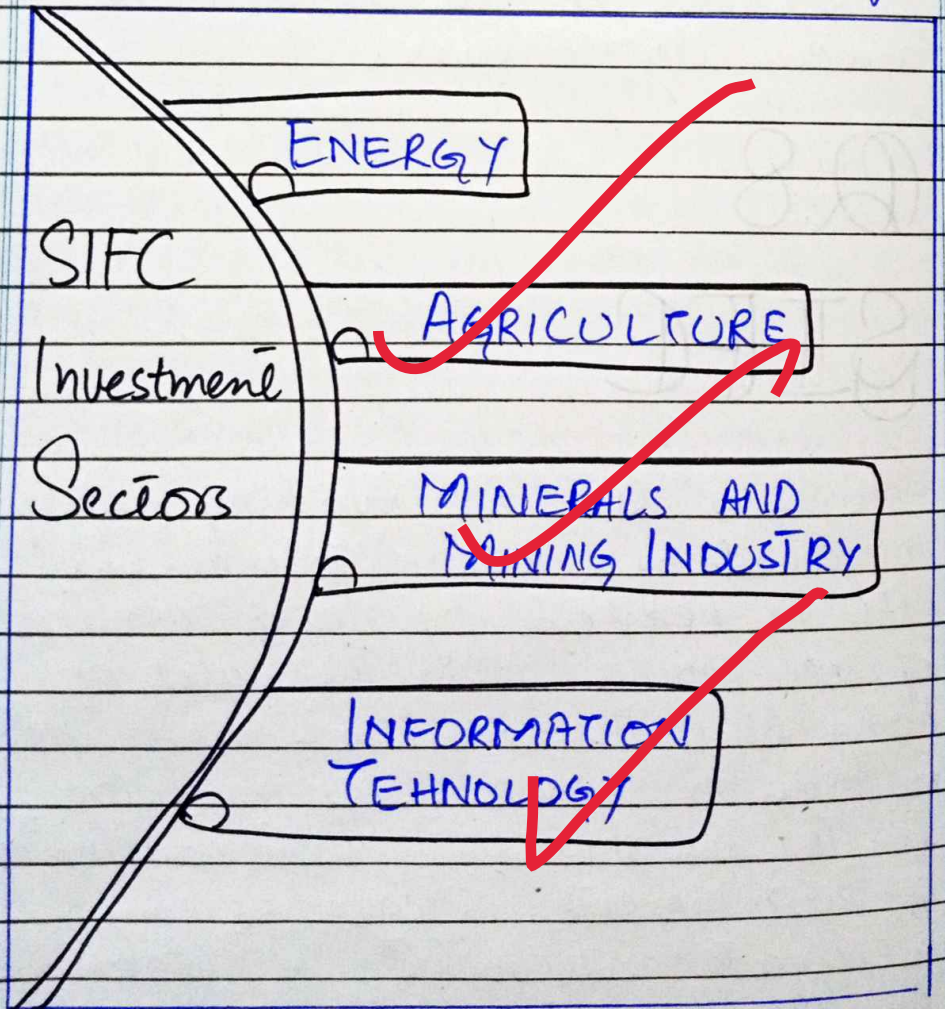 ENERGY
SIFC
Investment
Sectors
AGRICULTURE
MINERALS AND
MINING INDUSTRY
INFORMATION
TEHNOLOGY